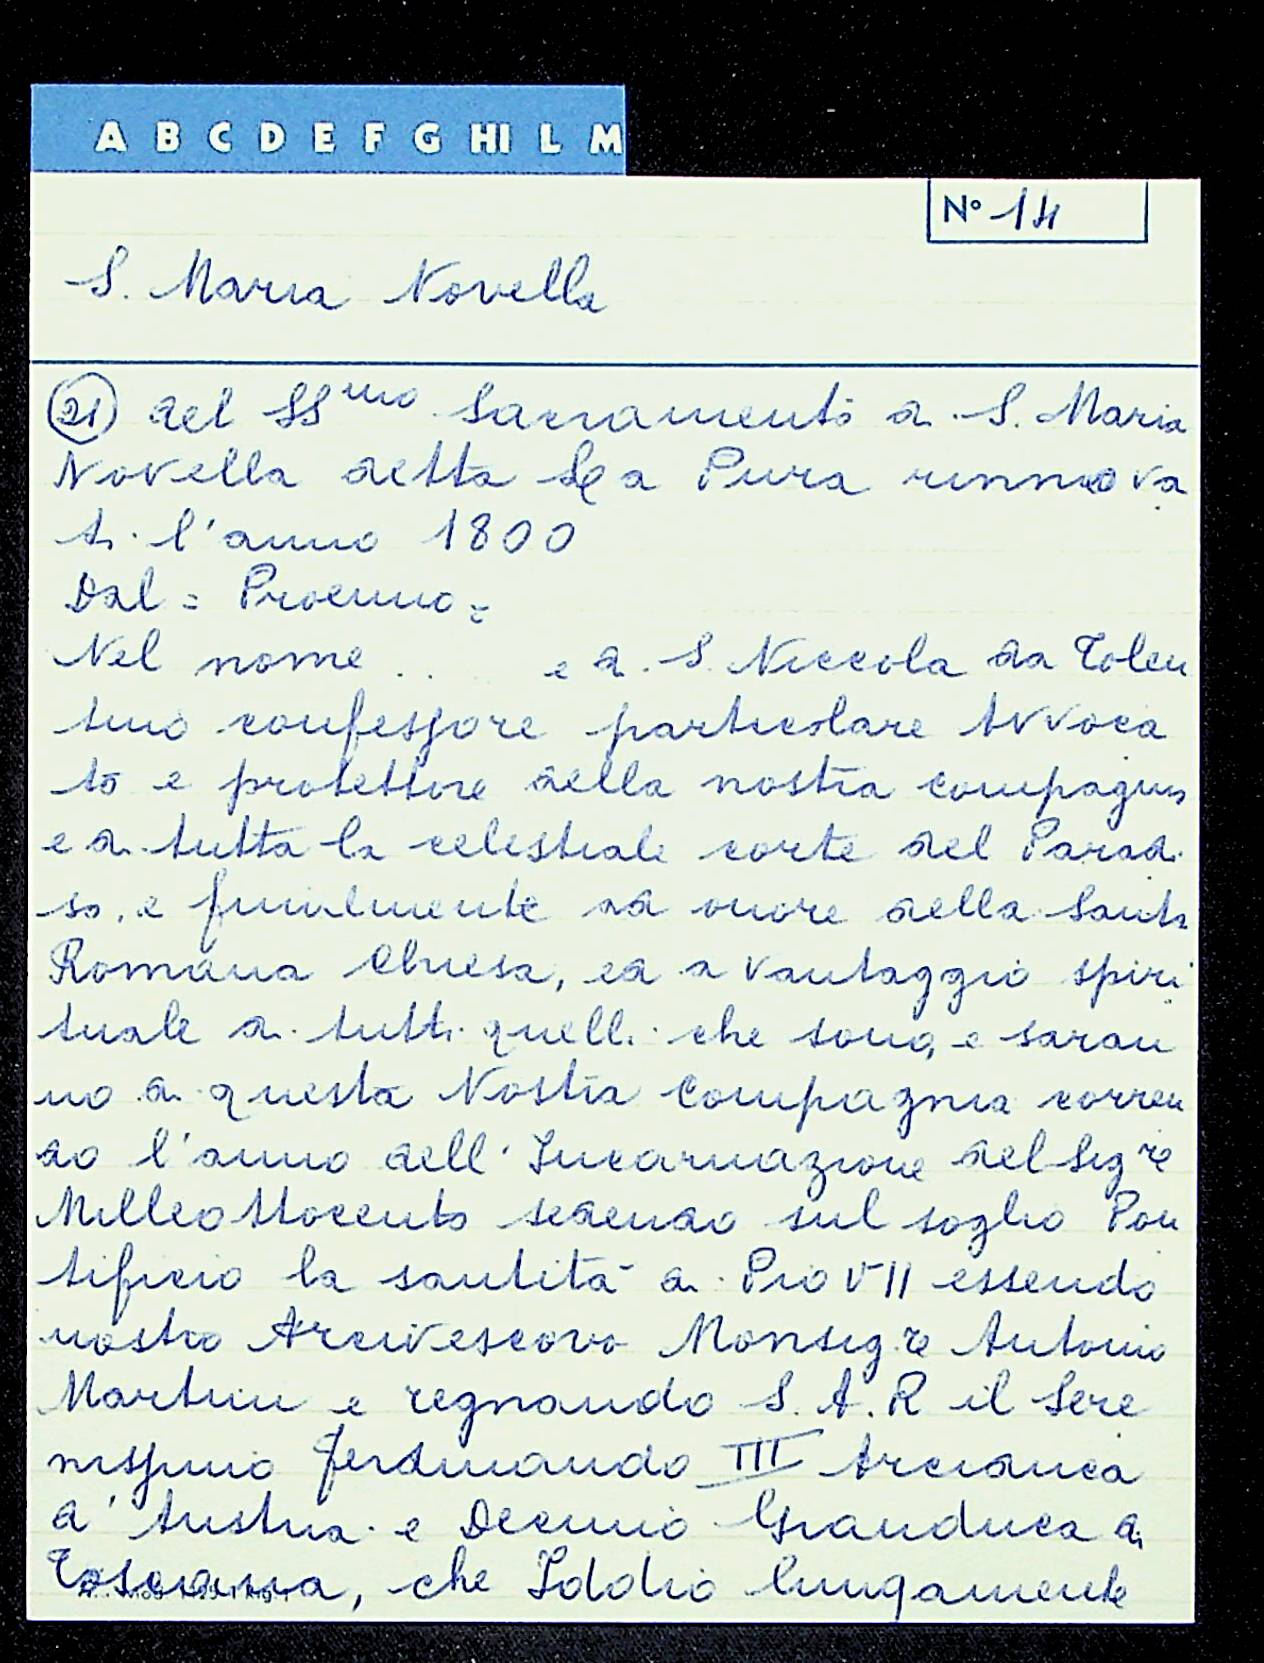 A B C D E F G HI L M
Nº 14
S. Maria Novella
(21) del SSmo Sacramento di S. Maria
Novella detta La Pura rinnova
ti l'anno 1800
Dal = Proemio =
Nel nome . . . e di S. Niccola da Tolen
tino confessore particolare Avvoca
to e protettore della nostra compagnia
e di tutta la celestiale corte del Paradi
so, e finalmente ad onore della Santa
Romana Chiesa, ed a vantaggio spiri
tuale di tutti quelli che sono, e saran
no di questa Nostra Compagnia corren
do l'anno dell'Incarnazione del Sigre
Milleottocento sedendo sul soglio Pon
tificio la santità di Pio VII essendo
nostro Arcivescovo Monsigre Antonio
Martini e regnando S. A. R il Sere
nissimo Ferdinando III Arciduca
d'Austria e Decimo Granduca di
Toscana, che Iddio lungamente